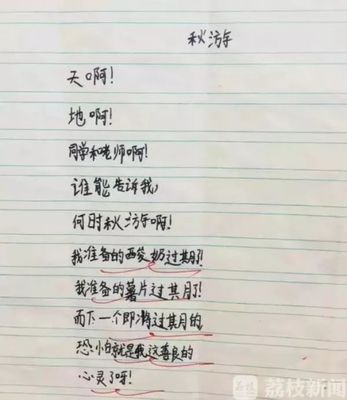 秋游
天啊!
地啊!
同学和老师啊!
谁能告诉我,
何时秋游啊!
我准备的酸奶过期了!
我准备的薯片过期了!
而下一个即将过期的
恐怕就是我这善良的
心灵了呀!
荔枝新闻